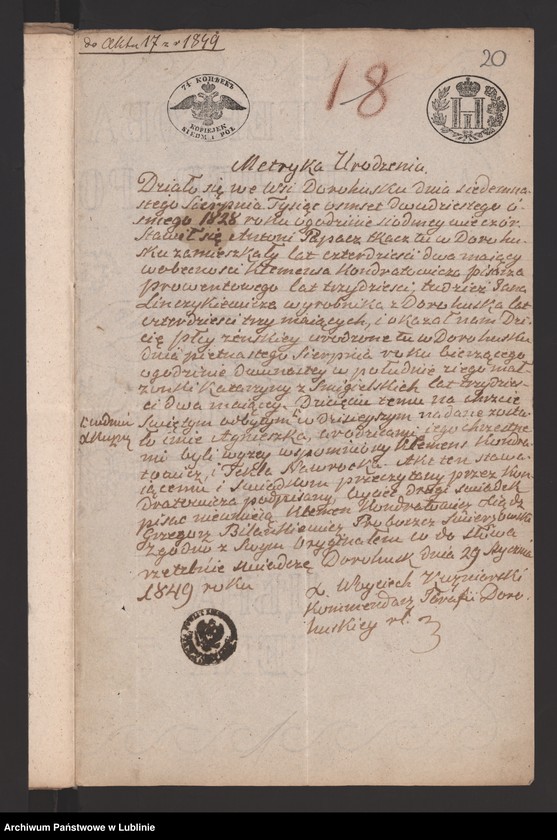 do Aktu 17 z r 1849
20
18
7½ КОПѢЕКЪ
KOPIEJEK SIEDM. I PÓŁ
Metryka Urodzenia.
Działo się we Wsi Dorohusku dnia siedemna-
stego Sierpnia Tysiąc osmset dwudziestego ó-
smego 1828 roku o godzinie siodmey wieczór
Stawił się Antoni Papacz tkacz tu w Dorohu-
sku zamieszkały lat czterdzieści dwa maiący
w obecności Klemensa Kondratowicza pisarza
prowentowego lat trzydzieści, tudzież Jana
Linczykiewicza wyrobnika z Dorohuska lat
czterdzieści trzy maiących, i okazał nam Dzi-
cię płci żeńskiey urodzone tu w Dorohusku
dnia piętnastego Sierpnia roku bieżącego
o godzinie dwunastey w południe z iego mał-
żonki Katarzyny z Smigielskich lat trzydzie-
ści dwa maiącey. Dziecięciu temu na chrzcie
Swiętym odbytym w dzisieyszym nadane zosta-
ło imie Agnieszka, a rodzicami iego chrzestne-
mi byli wyżey wspomniony Klemens Kondra-
towicz, i Tekla Nawrocka. Akt ten stawa-
iącemu i Swiadkom przeczytany przez Kon-
dratowicza podpisany, bowiem drugi swiadek
pisać nieumieią Klemens Kondratowicz Xiądz
Grzegorz Bilankiewicz Proboszcz Swierżowski
Zgodno z swym Oryginałem co do słowa
rzetelnie swiadczę Dorohusk dnia 29 Stycznia
1849 roku
X. Woyciech Kuzniarski
Kommendarz Parafii Doro-
huskiey
Archiwum Państwowe w Lublinie